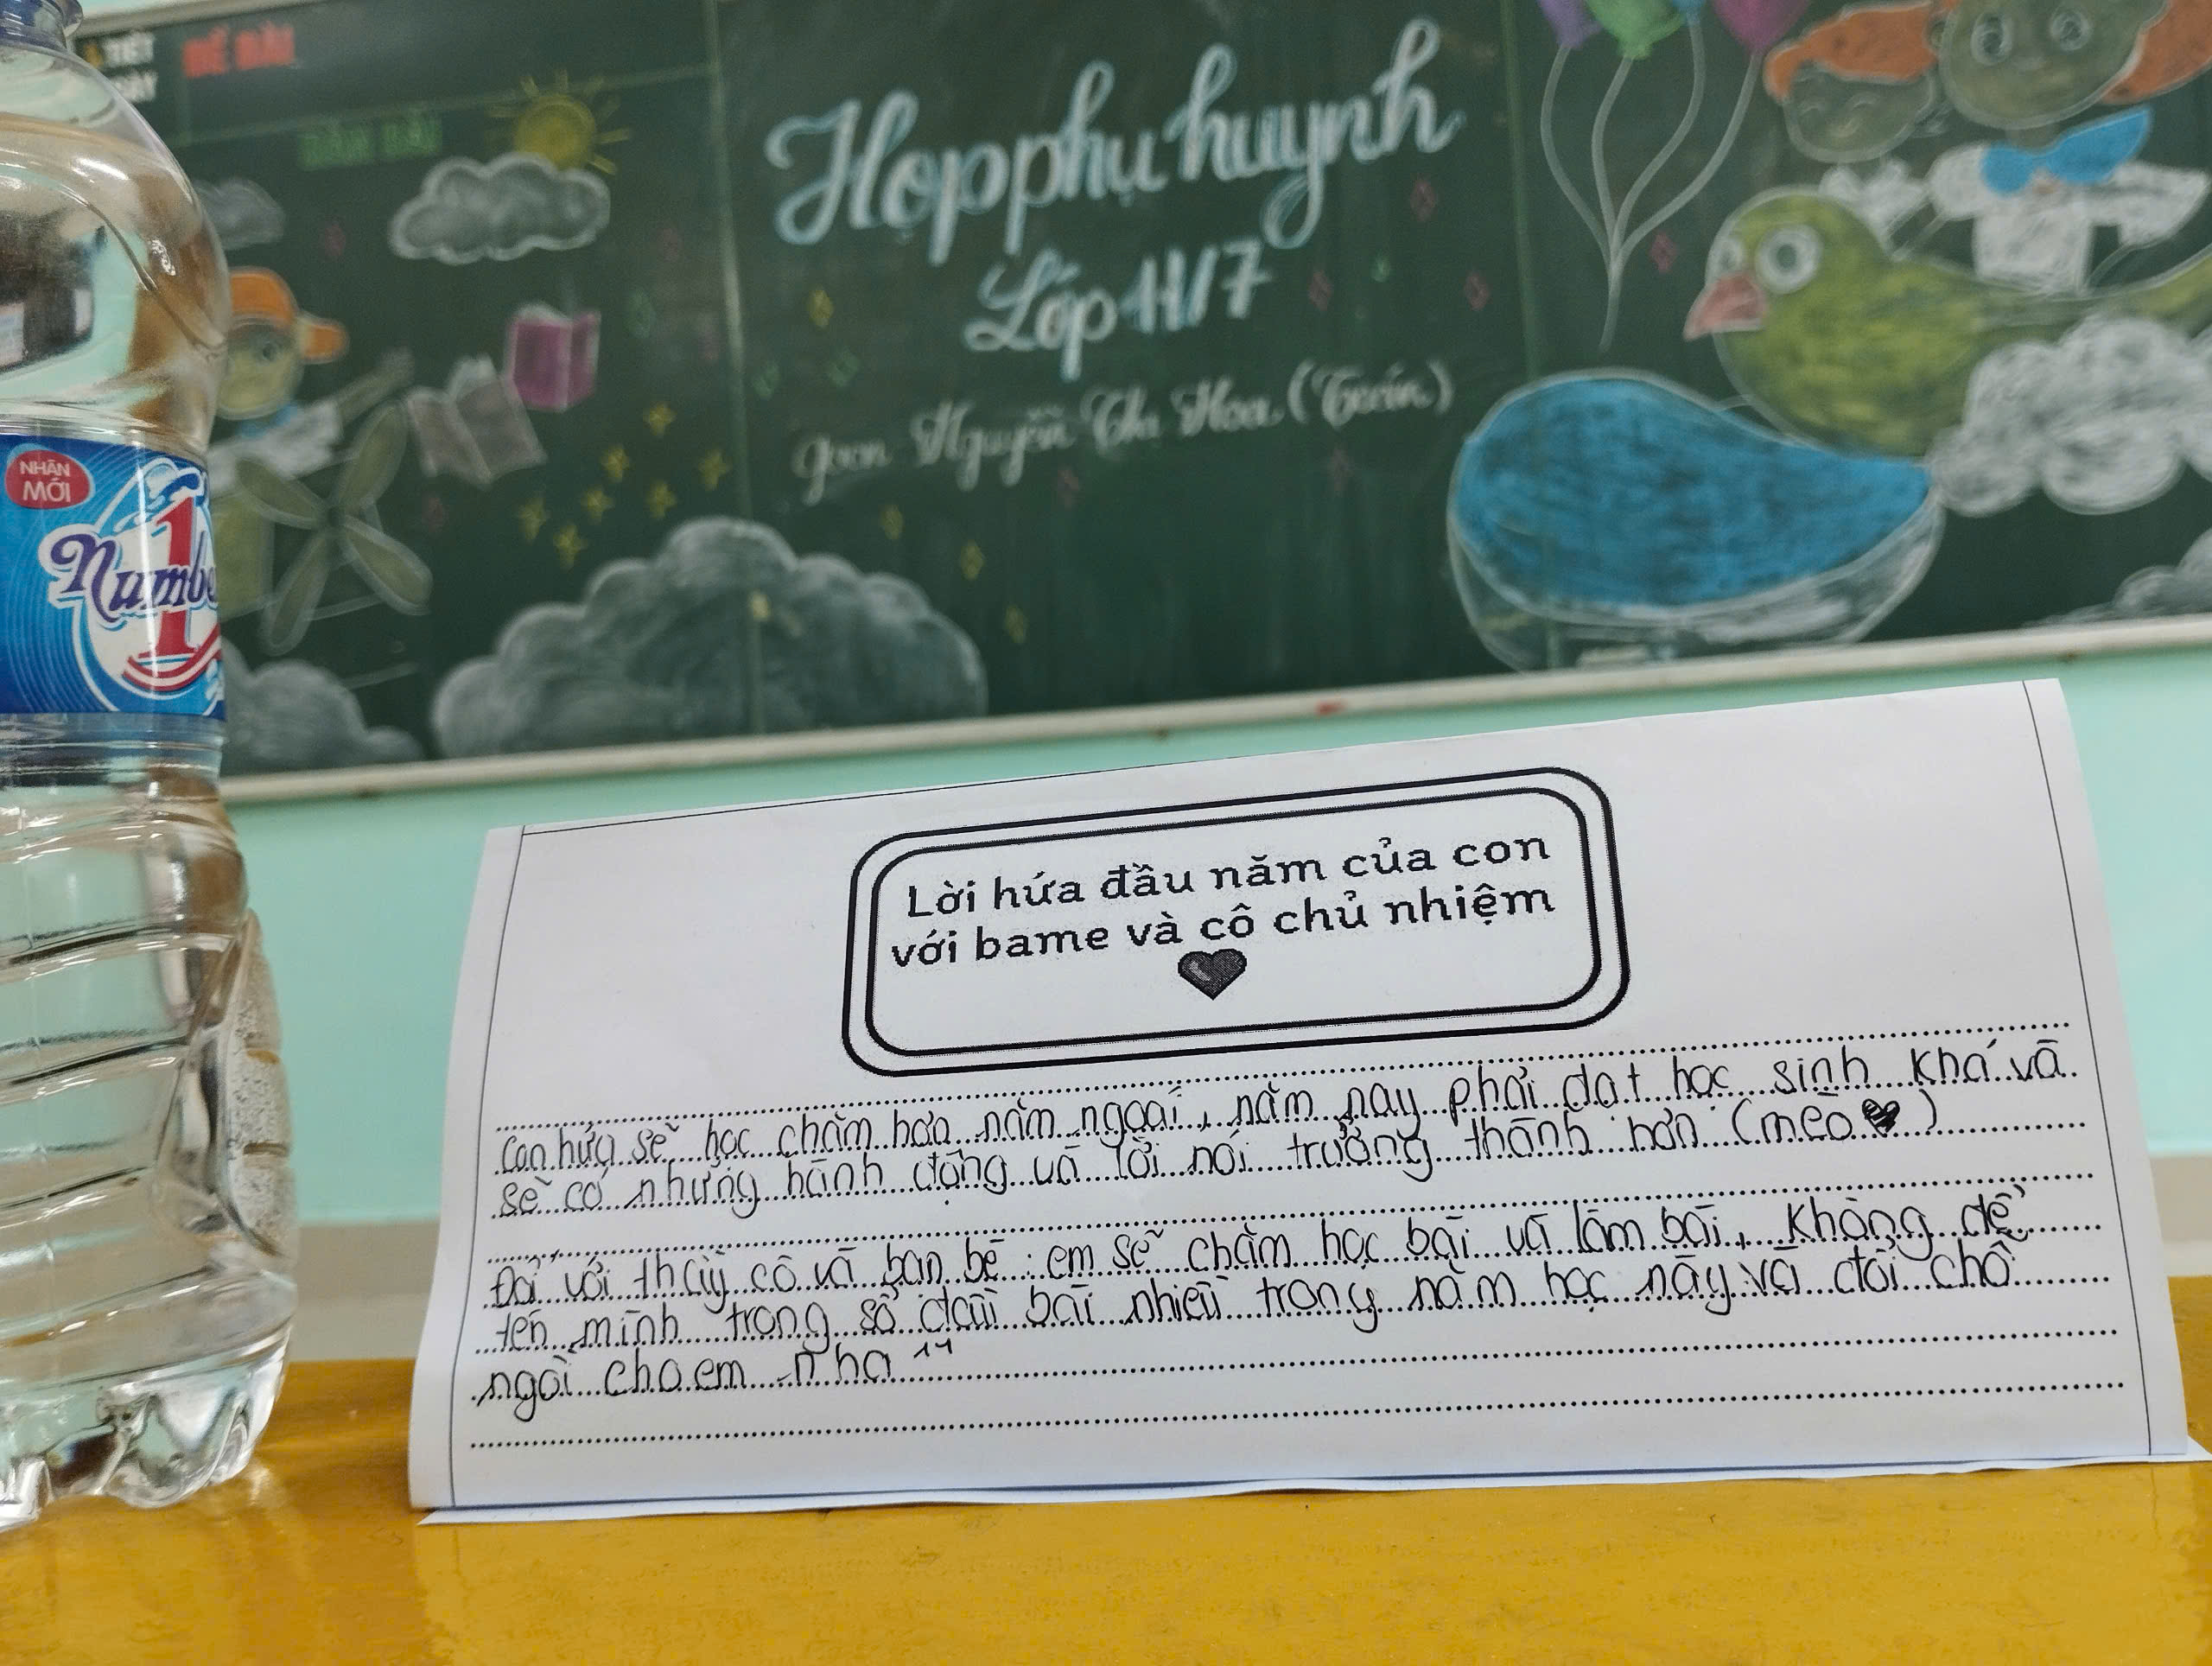 TIẾT
ĐỀ BÀI
Họp phụ huynh
Lớp 11/7
gvcn Nguyễn Thị Hoa (Toán)
NHÃN
MỚI
Number
1
Lời hứa đầu năm của con
với bame và cô chủ nhiệm
Con hứa sẽ học chăm hơn năm ngoái, năm nay phải đạt học sinh khá và
sẽ có những hành động và lời nói trưởng thành hơn (mẽo ♥)
Đối với thầy cô và bạn bè : em sẽ chăm học bài và làm bài, không để
tên mình trong sổ đầu bài nhiều trong năm học này và đổi chỗ
ngồi cho em nha